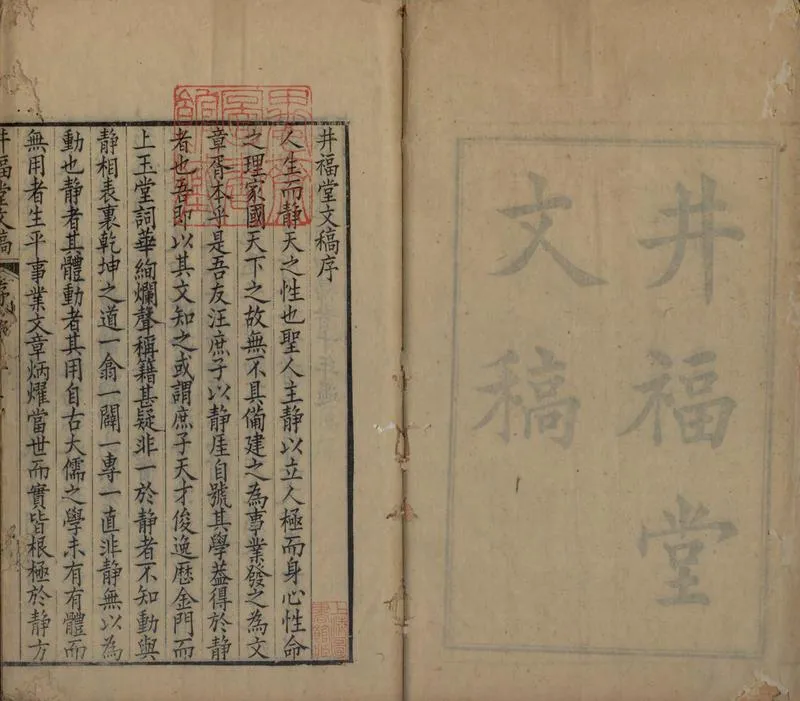 井福堂
文稿
井福堂文稿序
人生而靜天之性也聖人主靜以立人極而身心性命
之理家國天下之故無不具備建之為事業發之為文
章胥本乎是吾友汪庶子以靜厓自號其學蓋得於靜
者也吾即以其文知之或謂庶子天才俊逸歷金門而
上玉堂詞華絢爛聲稱籍甚疑非一於靜者不知動與
靜相表裏乾坤之道一翕一闢一專一直非靜無以為
動也靜者其體動者其用自古大儒之學未有有體而
無用者生平事業文章炳燿當世而實皆根極於靜方
井福堂文稿
序